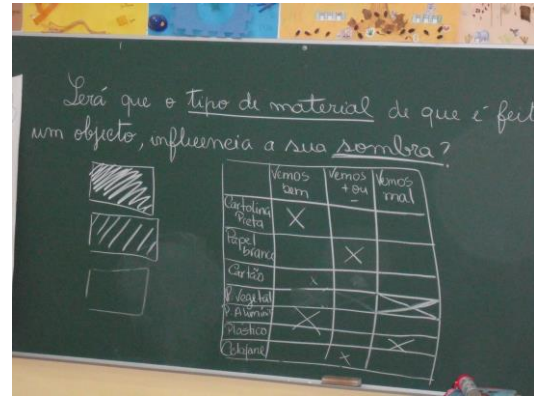 Será que o tipo de material de que é feit
um objecto, influencia a sua sombra?
Vemos bem
Vemos + ou -
Vemos mal
Cartolina Preta
Papel branco
Cartão
P. Vegetal
P. Alumínio
Plástico